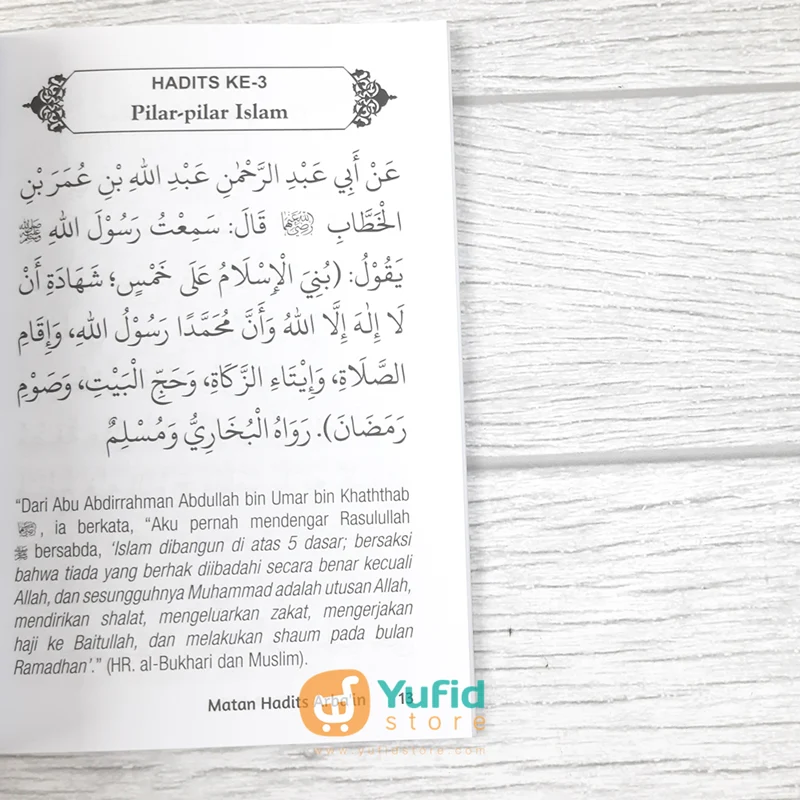 HADITS KE-3
Pilar-pilar Islam
عَنْ أَبِي عَبْدِ الرَّحْمٰنِ عَبْدِ اللهِ بْنِ عُمَرَ بْنِ
الْخَطَّابِ رضي الله عنهما قَالَ: سَمِعْتُ رَسُوْلَ اللهِ ﷺ
يَقُوْلُ: (بُنِيَ الْإِسْلَامُ عَلَى خَمْسٍ؛ شَهَادَةِ أَنْ
لَا إِلٰهَ إِلَّا اللهُ وَأَنَّ مُحَمَّدًا رَسُوْلُ اللهِ، وَإِقَامِ
الصَّلَاةِ، وَإِيْتَاءِ الزَّكَاةِ، وَحَجِّ الْبَيْتِ، وَصَوْمِ
رَمَضَانَ). رَوَاهُ الْبُخَارِيُّ وَمُسْلِمٌ
“Dari Abu Abdirrahman Abdullah bin Umar bin Khaththab
, ia berkata, “Aku pernah mendengar Rasulullah
ﷺ bersabda, ‘Islam dibangun di atas 5 dasar; bersaksi
bahwa tiada yang berhak diibadahi secara benar kecuali
Allah, dan sesungguhnya Muhammad adalah utusan Allah,
mendirikan shalat, mengeluarkan zakat, mengerjakan
haji ke Baitullah, dan melakukan shaum pada bulan
Ramadhan’.” (HR. al-Bukhari dan Muslim).
Matan Hadits Arba'in 13
Yufid
store
www.yufidstore.com